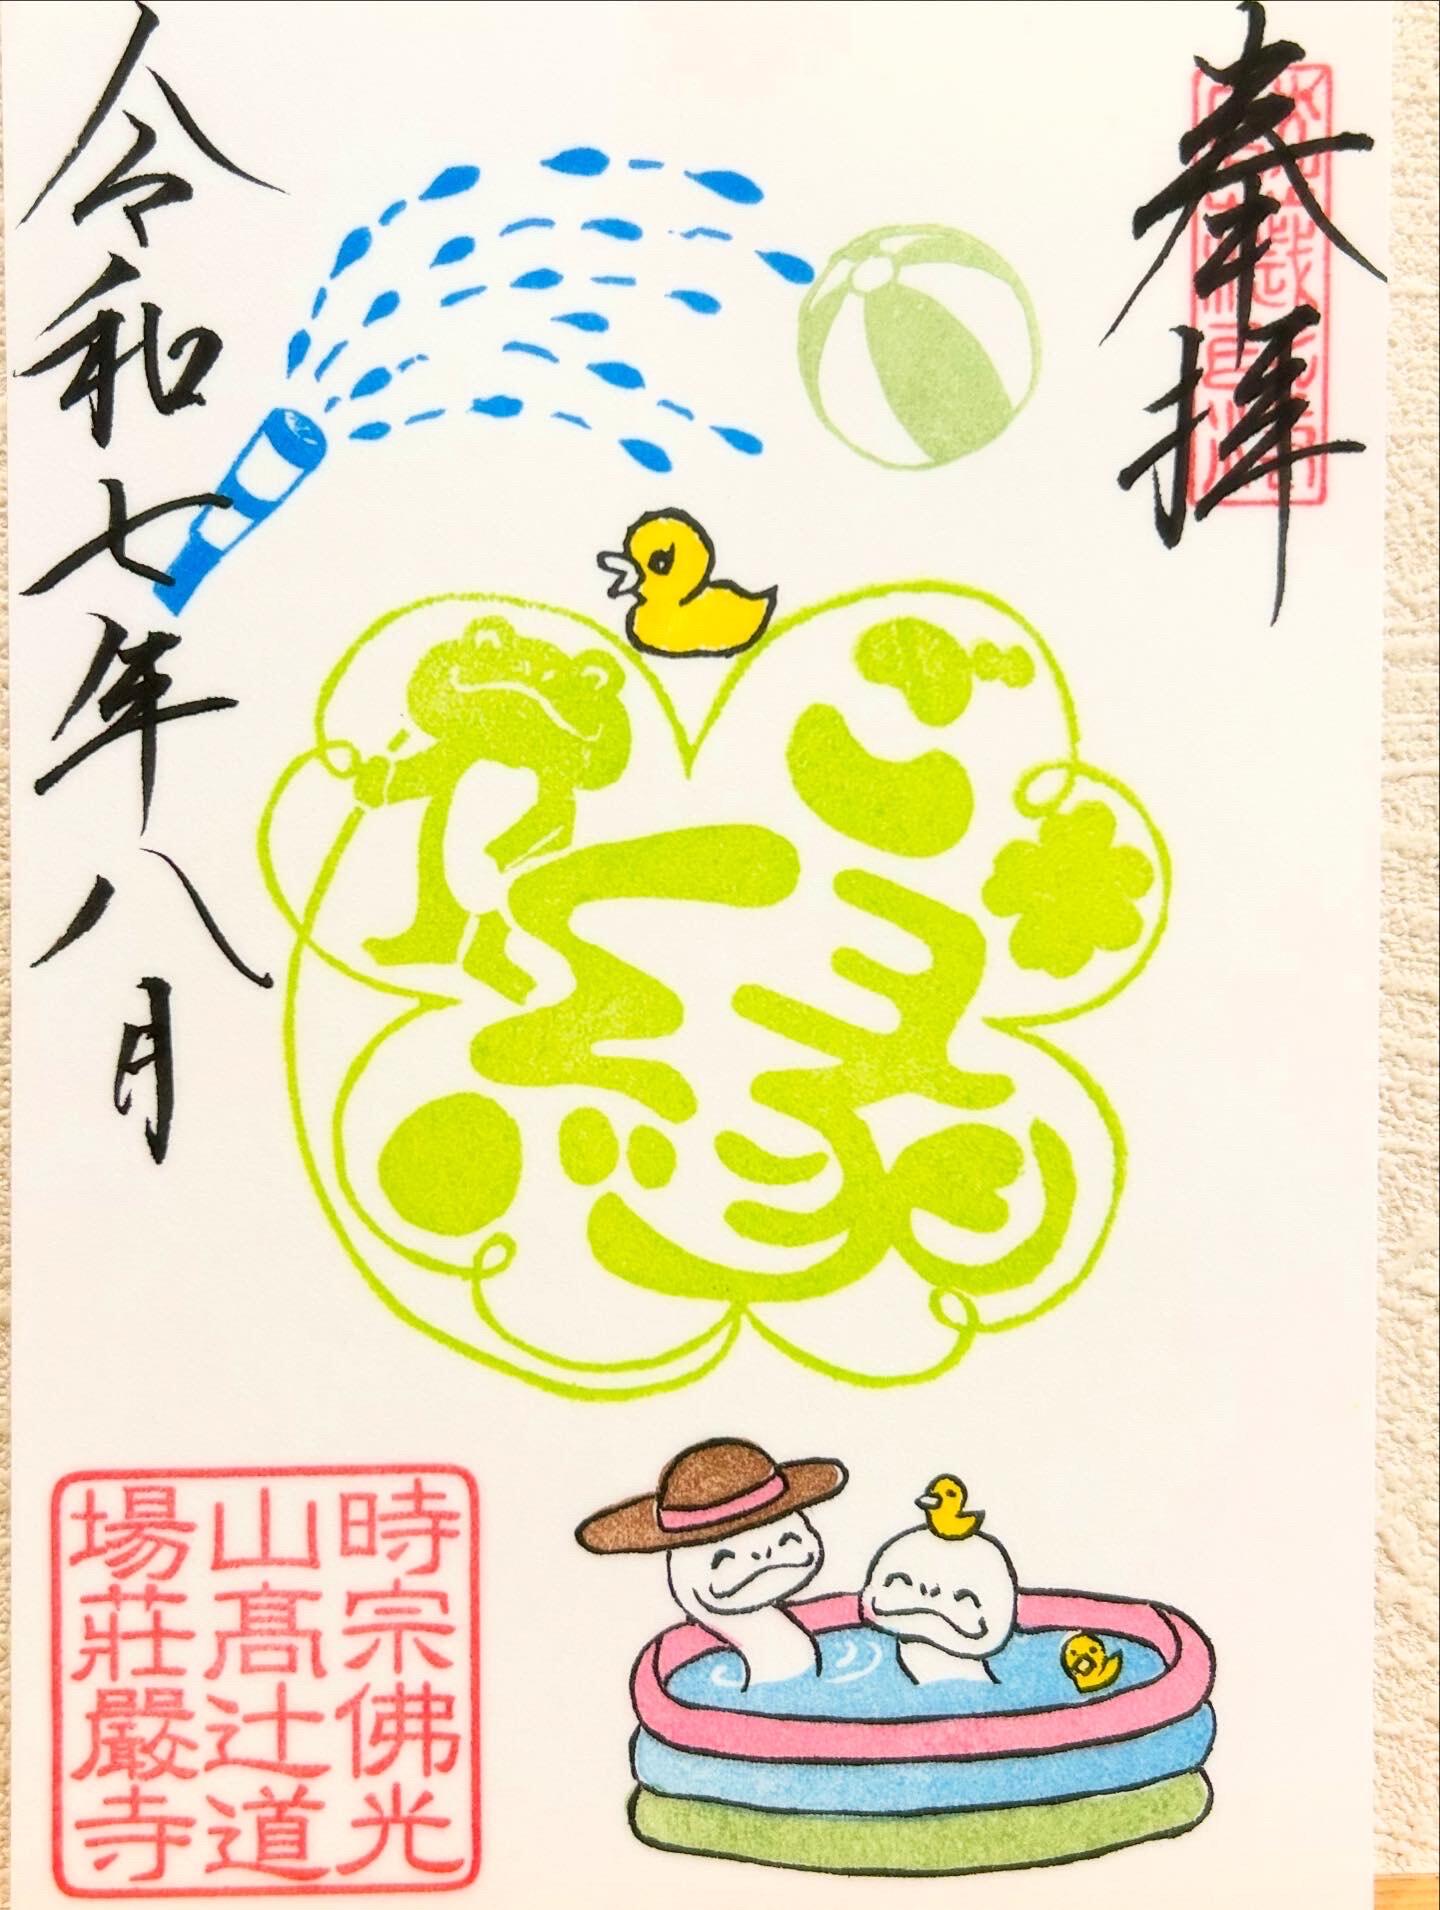 奉拝
ご縁
令和七年八月
時宗佛光
山髙辻道
場莊嚴寺